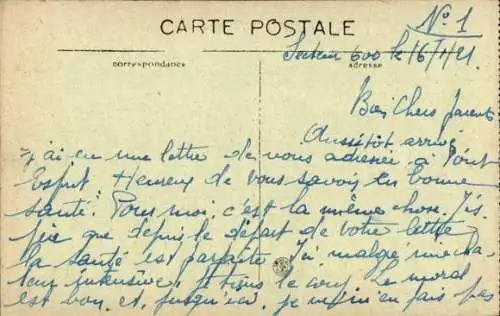 CARTE POSTALE
N° 1
correspondance
adresse
Secteur 600 le 16/1/21
Bien Chers Parents
Aussitôt arrivé
j'ai eu une lettre de vous adressée à Pont
Esprit Heureux de vous savoir en bonne
santé. Pour moi, c'est la même chose. J'es-
père que depuis le départ de votre lettre
la santé est parfaite. Ici malgré une
chaleur intensive, je tiens le coup. Le moral
est bon, et, jusqu'ici, je m'en fais pas